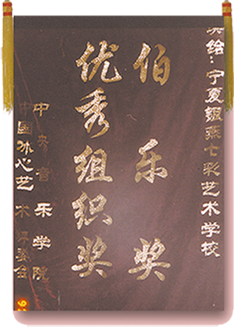 奖给:宁夏姬燕七彩艺术学校
伯乐奖
优秀组织奖
中央音乐学院
中国 心艺术